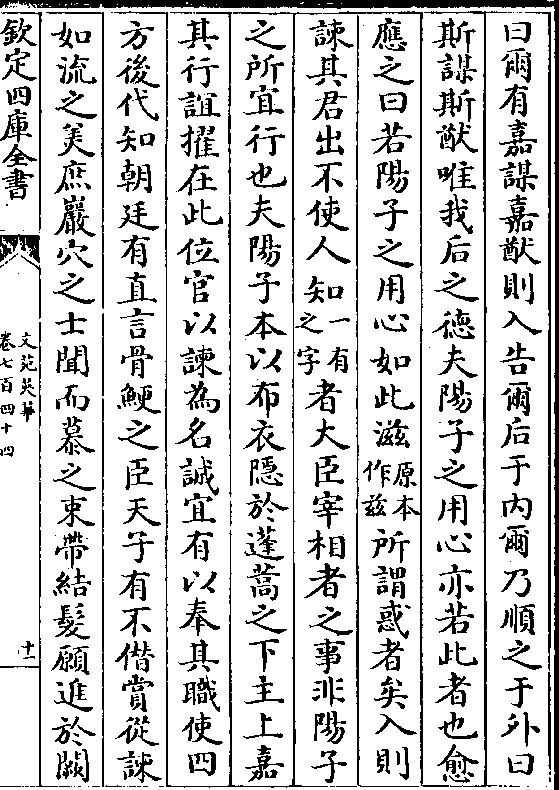 曰爾有嘉謀嘉猷則入告爾后于内爾乃順之于外曰
斯謀斯猷唯我后之德夫陽子之用心亦若此者也愈
應之曰若陽子之用心如此滋原本作兹所謂惑者矣入則
諫其君出不使人知一有之字者大臣宰相者之事非陽子
之所宜行也夫陽子本以布衣隱於蓬蒿之下主上嘉
其行誼擢在此位官以諫為名誠宜有以奉其職使四
方後代知朝廷有直言骨鯁之臣天子有不僭賞從諫
如流之美庶巖穴之士聞而慕之束帶結髮願進於闕
欽定四庫全書
文苑英華
卷七百四十四
十一